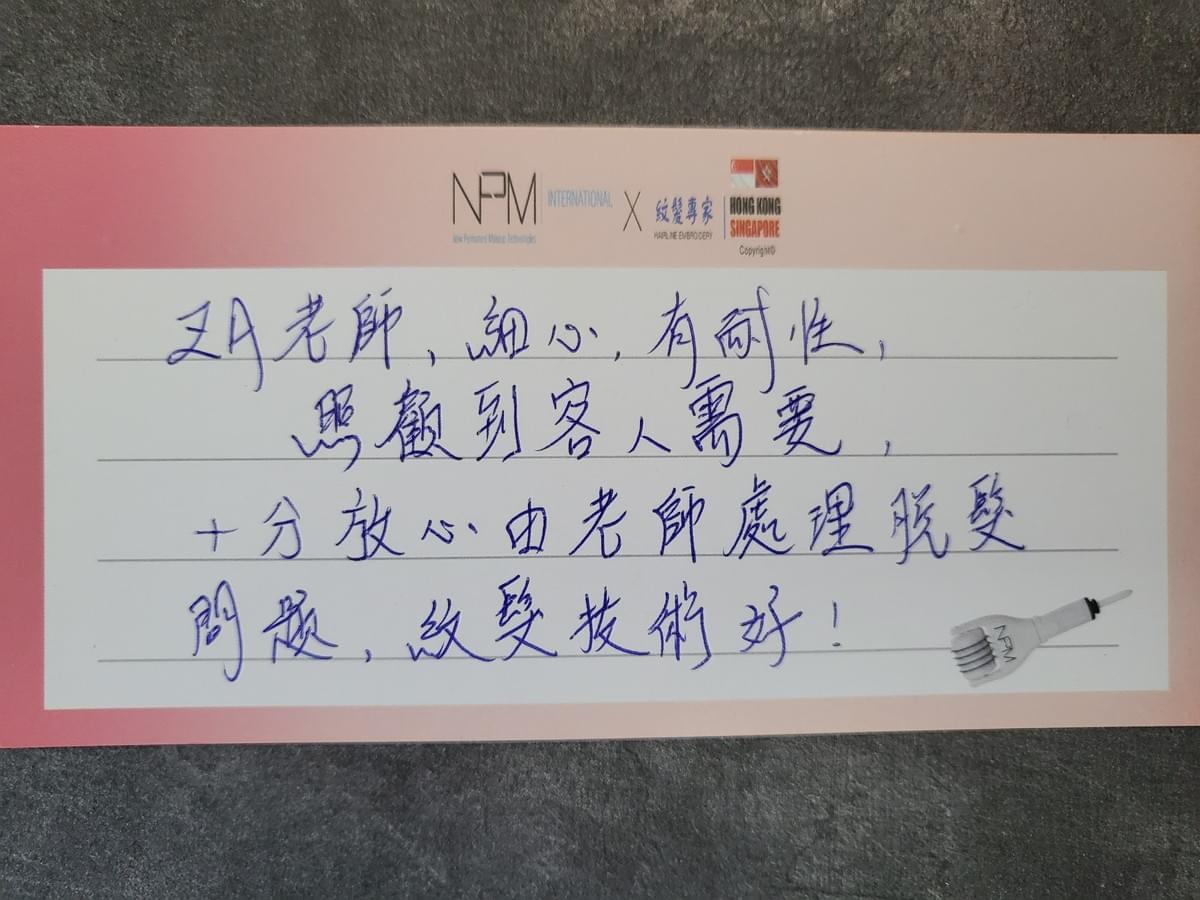 NPM INTERNATIONAL X 紋髮專家 HONG KONG
New Permanent Makeup Technologies HAIRLINE EMBROIDERY SINGAPORE
Copyright©
老師,細心,有耐性,
照顧到客人需要,
十分放心由老師處理脱髮
問題,紋髮技術好!
NPM